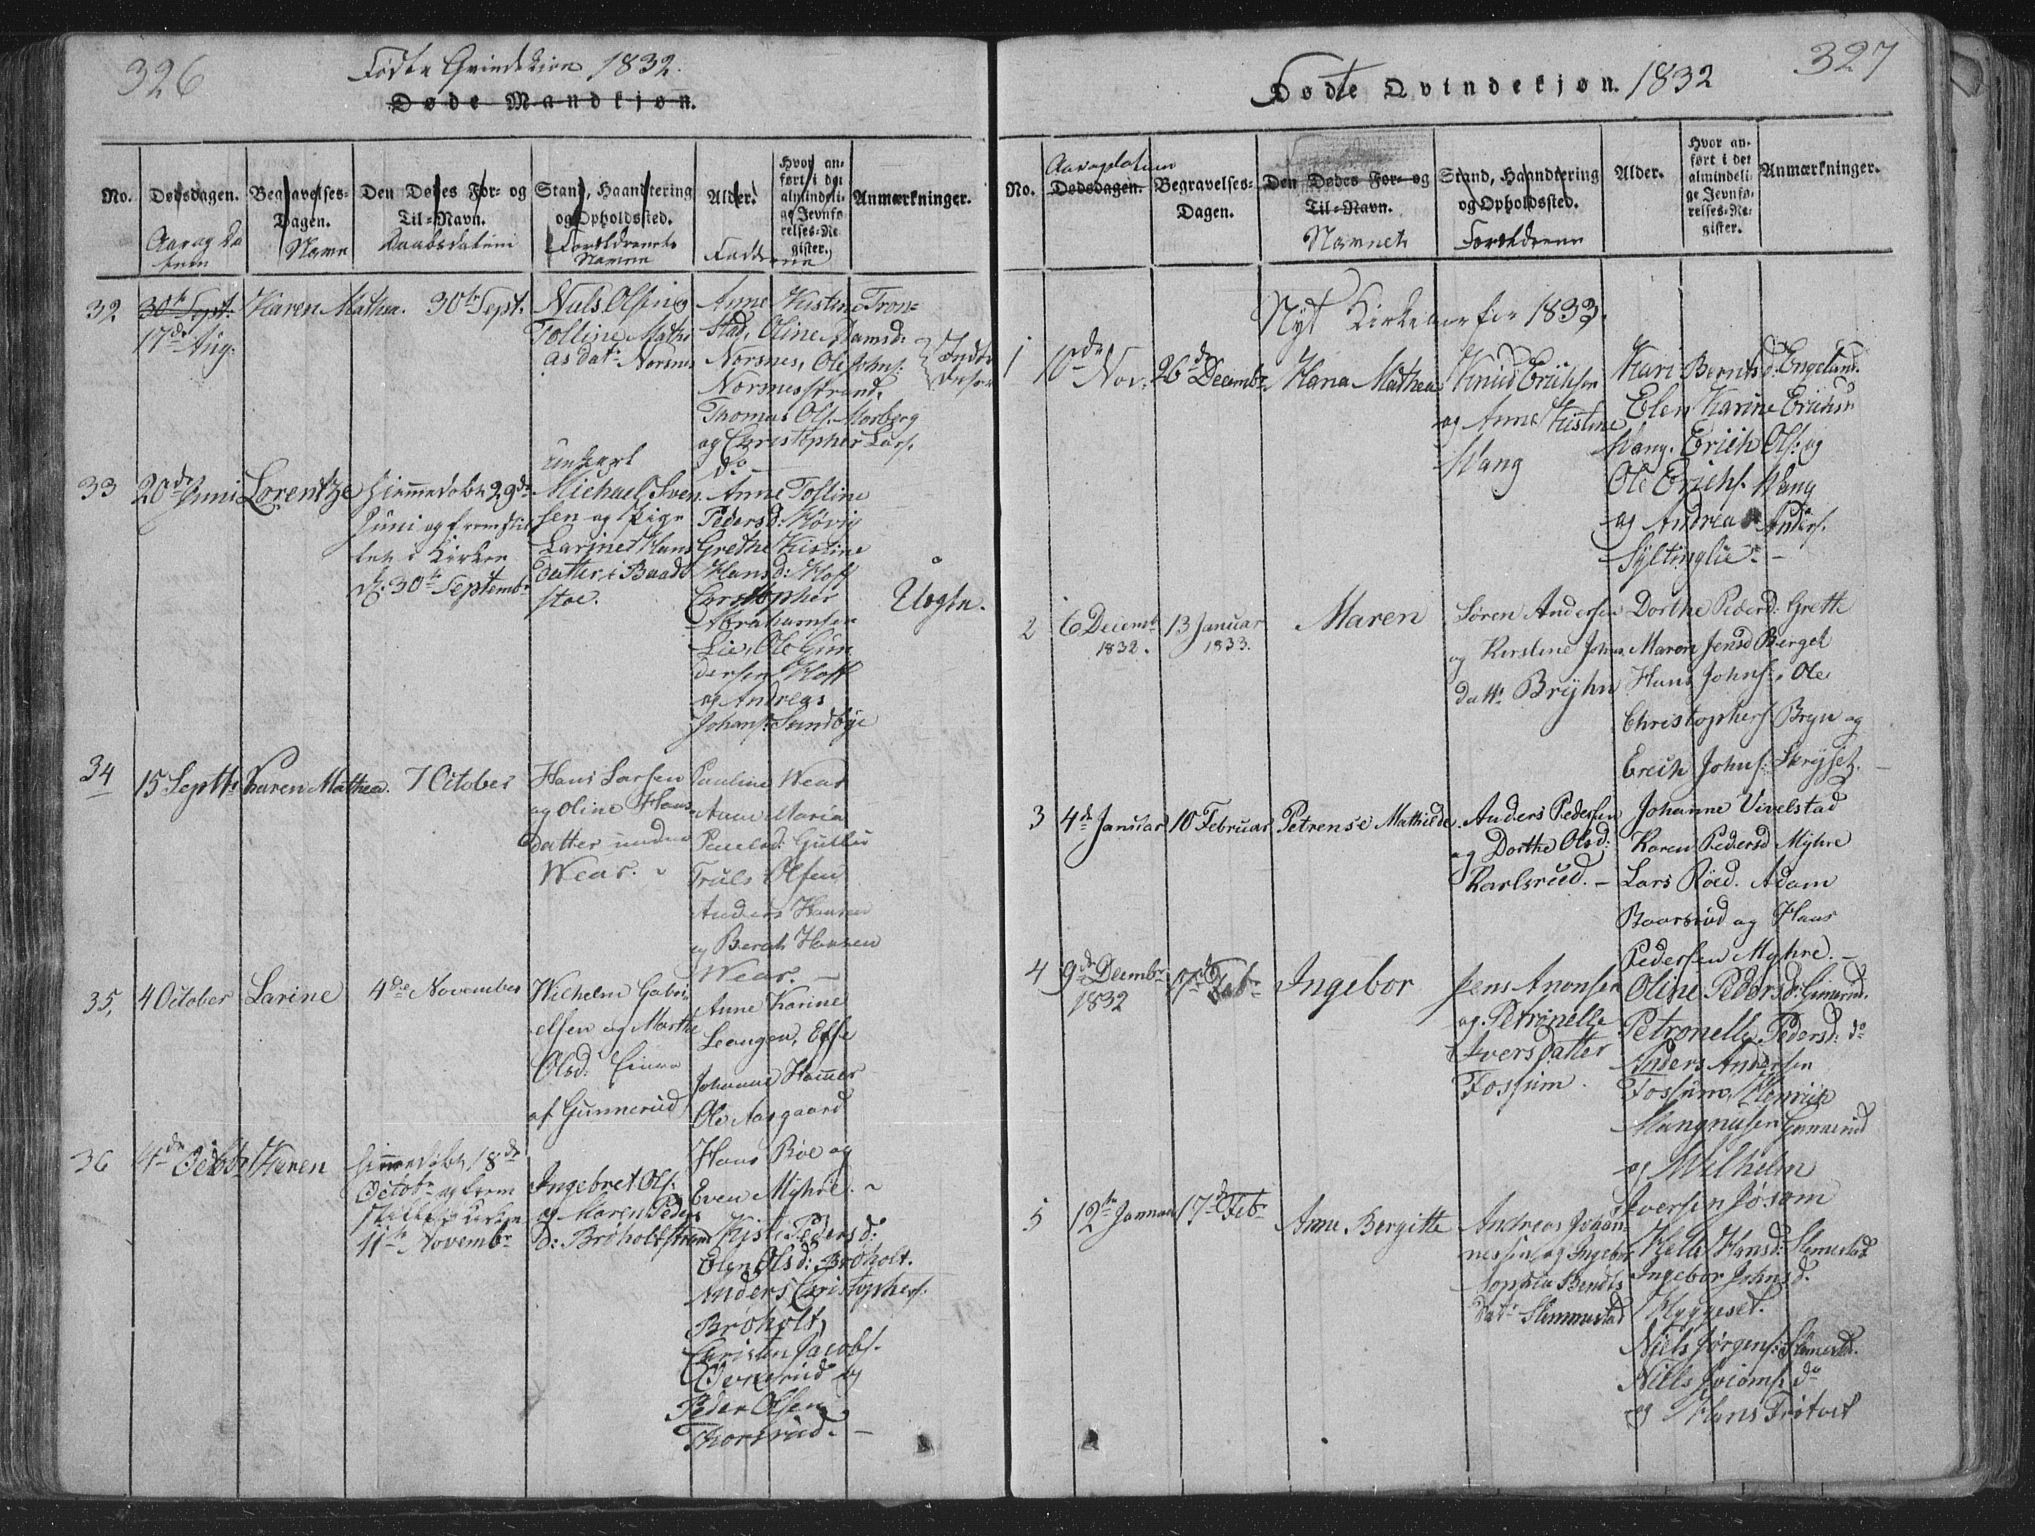 326
Fødte Qvindekiøn 1832.
Døde Mandkjøn.
No.
Dødsdagen.
Begravelses-
Dagen.
Den Dødes For- og
Til-Navn.
Stand, Haandtering
og Opholdssted.
Alder.
Hvor an-
ført i det
almindeli-
ge Jevnfø-
relses-Re-
gister.
Anmærkninger.
Navne
Daabsdatum
Forældrenes
Navne
Fadderne
32
30te Sept.
17de Aug.
Karen Mathea.
30te Sept.
Niels Olsen og
Tolline Mathi
asdatr Norsnes
Anne Kistine Tron-
stad, Oline Adamsd:
Norsnes, Ole Johns:
Norsnesstrand,
Thomas Ols. Morberg
og Christopher Lars.
do
33
20de Juni
Lorentze
Hiemmedøbt 29de
Juni og fremstil
let i Kirken
d. 30te Septembr
Michael Sven
sen og Pige
Larine Hans
datter i Baad
støe.
Anne Tolline
Pedersd: Høvig
Grethe Kistine
Hansd: Hoff
Christopher
Abrahamsen
Lie, Ole Gun
dersen Hoff
og Andreas
Johans: Sundbye
Uægte.
34
15 Septbr
Karen Mathea.
7 October
Hans Larsen
og Oline Hans
datter under
Wear.
Pauline Wear
Anne Maria
Paulsd: Gullu
Truls Olsen
Anders Hansen
og Berndt Hansen
Wear. –
35,
4 October
Larine
4de November
Wilhelm Gabri
elsen og Marthe
Olsd:
af Gunnerud
Anne Karine
Leangen, Else
Johanne Hammer
Ole Aasgaard
Hans Bøe og
Even Myhre. ~
36
4de Octobr
Karen
Hiemmedøbt 18de
Octobr og frem
stillet i Kirken
11te Novembr
Ingebret Ols.
og Maren Peders
D: Brøholtstrand
Kiste Pedersd:
Olgn Olsd: Brøholt.
Anders Christophers.
Brøholt,
Christen Jacobs.
Overerud og
Peder Olsen
Thorsrud. –
327
Fødte Qvindekjøn. 1832
No.
Aaragdatum
Dødsdagen.
Begravelses-
Dagen.
Den Dødes For- og
Til-Navn.
Navnet
Stand, Haandtering
og Opholdssted.
Forældrene
Alder.
Hvor an-
ført i det
almindeli-
ge Jevnfø-
relses-Re-
gister.
Anmærkninger.
Nyt Kirkeaar for 1833.
1
10de Nov.
26de Decembr.
Hana Mathea
Knud Erichsen
og Anne Kistine
Wang
Kari Berntsd. Engeland.
Elen Karine Erichsd
Wang. Erich Ols: og
Ole Erichs. Wang
og Andrea Anders.
Syltinglie. –
2
6 Decembr
1832.
13 Januar
1833.
Maren
Søren Andersen
og Kirstine Johns
datr Bryhn
Dorthe Pedersd: Grette
Maren Jensd Berget
Hans Johns:, Ole
Christophers Bryn og
Erich Johns: Skryset. –
3
4de Januar
10 Februar
Petrense Mathilde.
Anders Pedersen
og Dorthe Olsd:
Karlsrud. –
Johanne Vivelstad
Karen Pedersd Myhre
Lars Røed. Adam
Baarsrud og Hans
Pedersen Myhre. –
4
9de Decembr
1832
17de Febr
Ingebor
Jens Anonsen
og Petronelle
Iversdatter
Fossum.
Oline Pedersd: Gunerud.
Petronelle Pedersd: do
Anders Andersen
Fossum, Henrich
Mangnusen Gunnerud
og Wilhelm
Iversen Jøsom
5
12te Januar
17de Febr
Anne Bergitte
Andreas Johan-
nessen og Ingebor
Sophia Bendts
datr Slemmestad
Helle Hansd: Slemestad
Ingebor Johnsd.
Hyggeset.
Niels Jørgens: Slemestd.
Niels do
og Hans Trøtvet